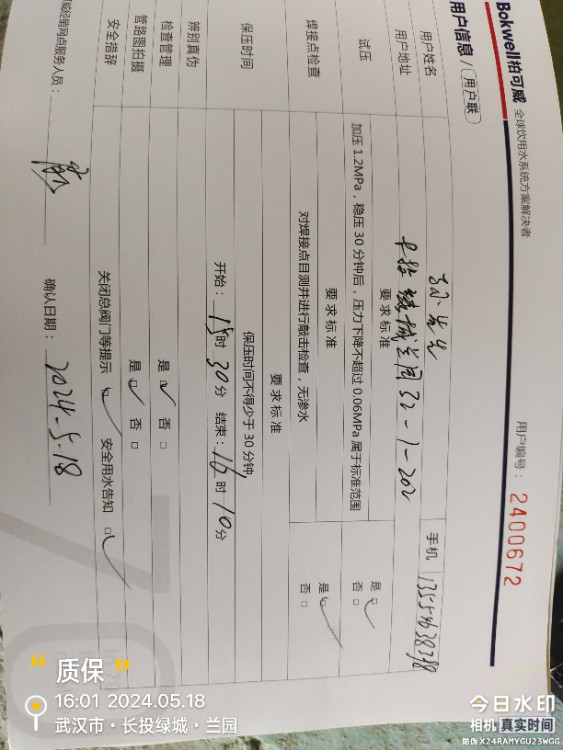 Bokwell柏可威 全球饮用水系统方案解决者
用户编号：2400672
用户信息 / 用户联
用户姓名 孙先生 手机
用户地址 长投绿城兰园32-1-202
要求标准
试压 加压1.2MPa，稳压30分钟后，压力下降不超过0.06MPa属于标准范围 是□✓ 否□
要求标准
焊接点检查 对焊接点目测并进行敲击检查，无渗水 是□✓ 否□
要求标准
保压时间 保压时间不得少于30分钟
开始：15时30分 结束：16时10分
辨别真伪 是□✓ 否□
检查管理 是□✓ 否□
管路图拍摄
安全措辞 关闭总阀门等提示□✓ 安全用水告知□✓
威经销网点服务人员：
确认日期：2024-5-18
“质保”
16:01 2024.05.18
武汉市·长投绿城·兰园
今日水印
相机 真实时间
防伪 X24RAMYGU23WGG